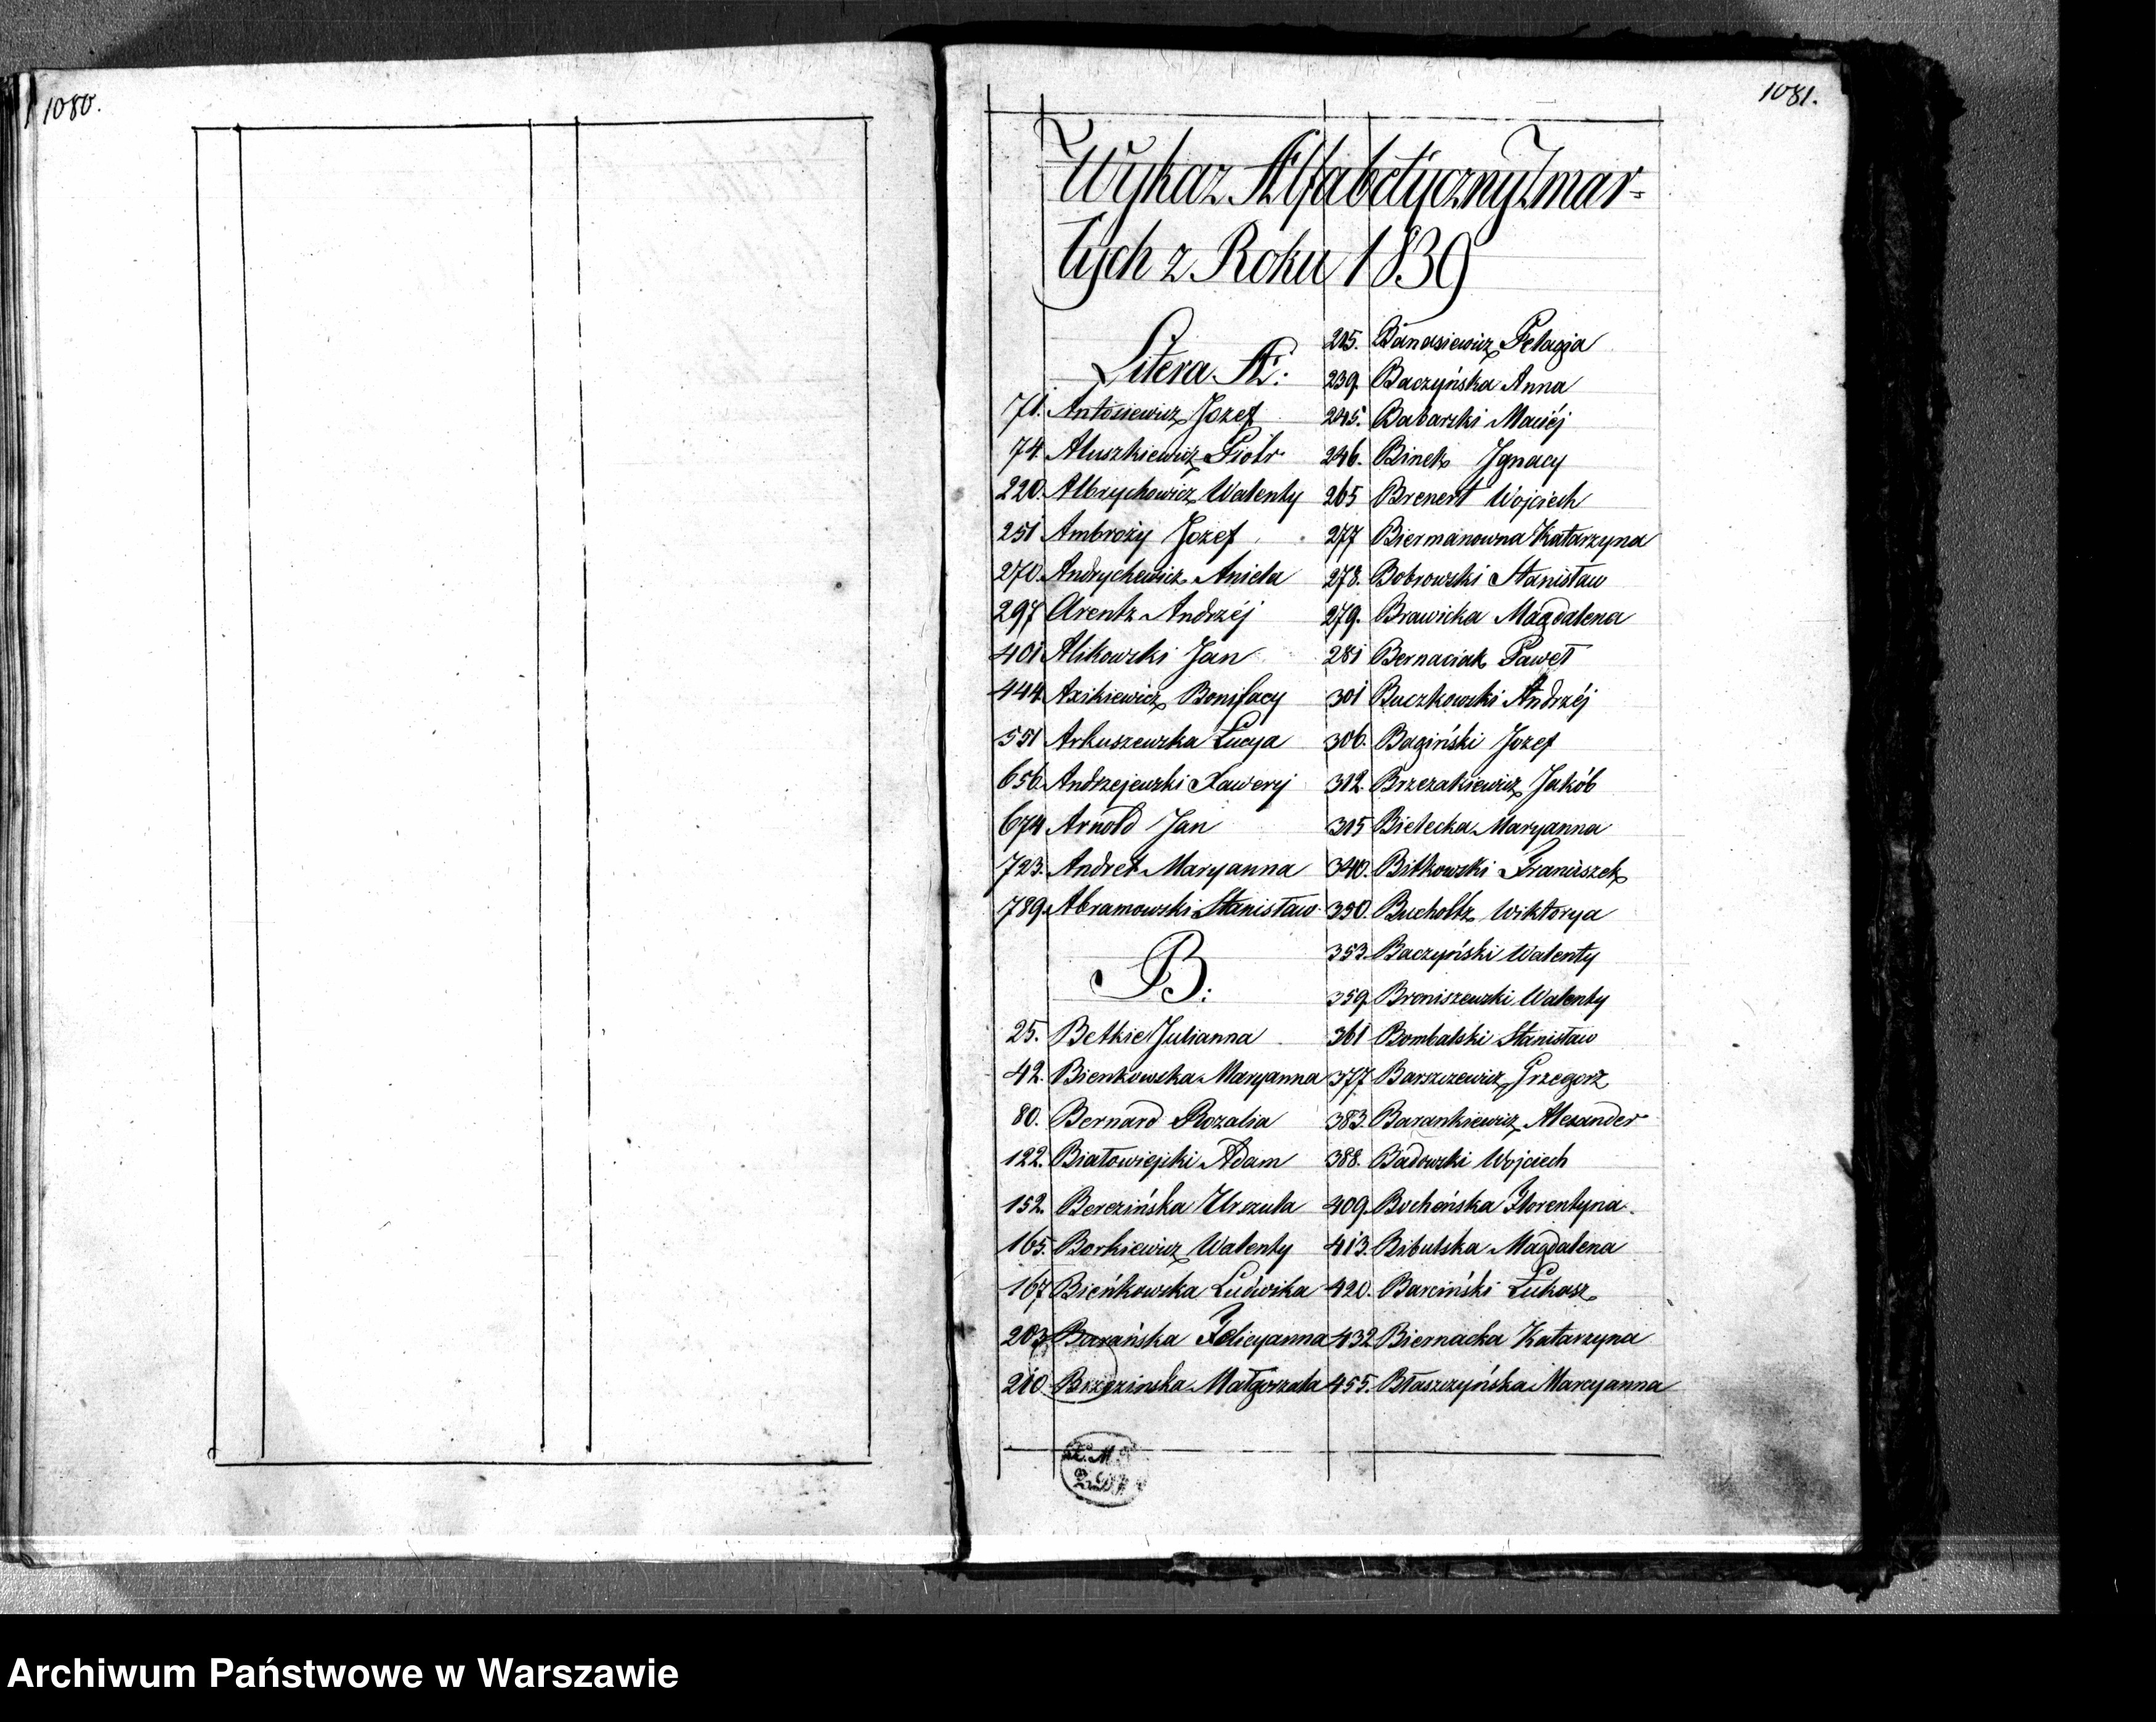 1080.
1081.
Wykaz Alfabetyczny Zmar-
łych z Roku 1839
Litera A.
71. Antosiewicz Jozef
74. Aluszkiewicz Piotr
220. Albrychowicz Walenty
251 Ambroży Jozef
270. Andrychewicz Aniela
297 Arentz Andrzéj
401 Alikowski Jan
444 Axikiewicz Bonifacy
551 Arkuszewska Łucya
656. Andrzejewski Xawery
674 Arnold Jan
723. Andret Maryanna
789. Abramowski Stanisław
B.
25. Betkie Julianna
42. Bienkowska Maryanna
80. Bernard Rozalia
122. Białowiejski Adam
152. Berezińska Urszula
165. Borkiewicz Walenty
167 Bieńkowska Ludwika
203 Barańska Felicyanna
210 Brzezinska Małgorzata
Banasiewicz Pelagia
239. Baczyńska Anna
245. Babarski Maciéj
246. Binek Ignacy
265 Brenert Wojciech
277 Biermanowna Katarzyna
278. Bobrowski Stanisław
279. Brawicka Magdalena
281 Bernaciak Paweł
301 Buczkowski Andrzéj
306. Bagiński Jozef
312. Brzezakiewicz Jakób
315 Bielecka Maryanna
340. Bitkowski Franciszek
350. Bucholtz Wiktorya
353. Baczyński Walenty
359. Broniszewski Walenty
361 Bombalski Stanisław
377. Barszczewicz Grzegorz
383. Barankiewicz Alexander
388. Badowski Wojciech
409. Bocheńska Florentyna
413. Bibulska Magdalena
420. Barciński Łukasz
432 Biernacka Katarzyna
455. Błaszczyńska Maryanna
Archiwum Państwowe w Warszawie